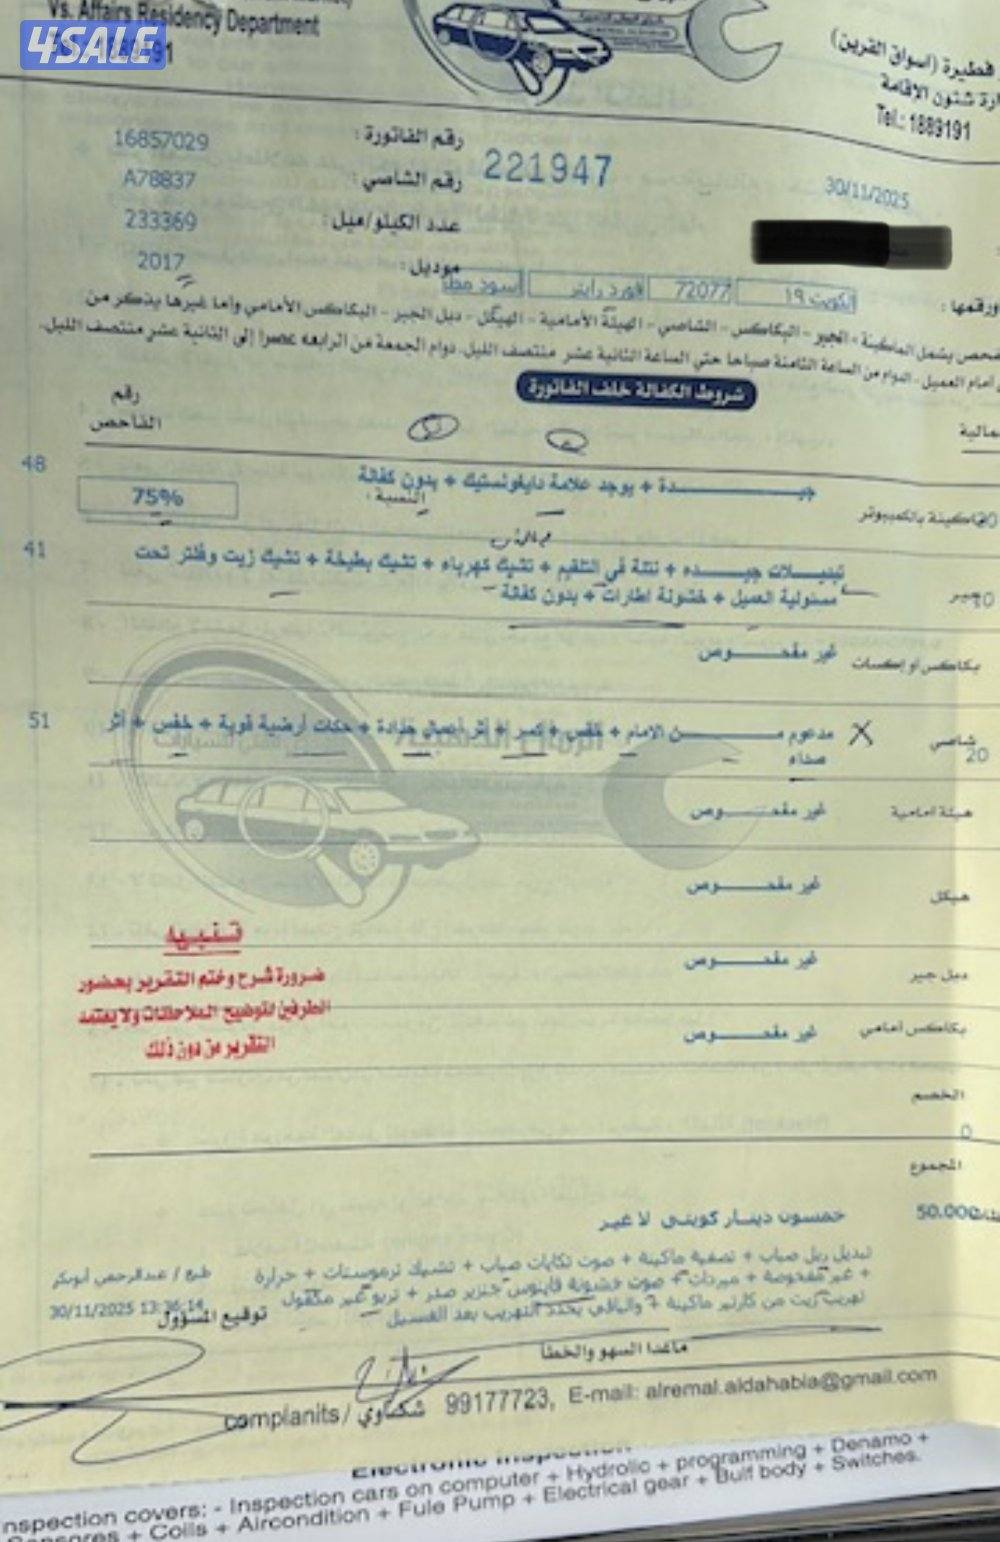 Vs. Affairs Residency Department
Tel.: 1889191
4SALE
فطيرة (اسواق القرين)
ارة شئون الاقامة
Tel.: 1889191
رقم الفاتورة : 16857029
221947
30/11/2025
رقم الشاصي : A78837
عدد الكيلو/ميل : 233369
موديل : 2017
ورقمها : الكويت ١٩ 72077 فورد رابتر أسود مطا
فحص يشمل الماكينة - الجير - البكاكس - الشاصي - الهيئة الأمامية - الهيكل - دبل الجير - البكاكس الأمامي وأما غيرها يذكر من
أمام العميل - الدوام من الساعة الثامنة صباحا حتى الساعة الثانية عشر منتصف الليل. دوام الجمعة من الرابعه عصرا إلى الثانية عشر منتصف الليل.
شروط الكفالة خلف الفاتورة
رقم
الفاحص
مالية
48
جيـــــدة + يوجد علامة دايغونستيك + بدون كفالة
النسبة : 75%
ماكينة بالكمبيوتر
41
تبديـــلات جيـــده + نتلة في التلقيم + تشيك كهرباء + تشيك بطيخة + تشيك زيت وفلتر تحت
مسئولية العميل + خشونة اطارات + بدون كفالة
جير
بكاكس او إكسات غير مفحـــوص
51
شاصي 20
مدعوم مـــــن الامام + خفس + كسر + أثر أعمال حدادة + حكات أرضية قوية + خفس + أثر
صداء
هيئة امامية غير مفحـــوص
هيكل غير مفحـــوص
دبل جير غير مفحـــوص
بكاكس أمامي غير مفحـــوص
تنبيه
ضرورة شرح وختم التقرير بحضور
الطرفين لتوضيح الملاحظات ولا يعتمد
التقرير من دون ذلك
الخصم
0
المجموع
50.000 خمسون دينار كويتي لا غير
تبديل ربل صباب + تصفية ماكينة + صوت تكايات صباب + تشيك ترموستات + حرارة
+ غير مفحوصة + مبردات + صوت خشونة فاينوس جنزير صدر + تربو غير مكفول
تهريب زيت من كارتير ماكينة + والباقي يحدد التهريب بعد الغسيل
طبع / عبدالرحمن أبوبكر
30/11/2025 13:36:14
توقيع المسؤول
ماعدا السهو والخطأ
complanits / شكاوي 99177723, E-mail: alremal.aldahabia@gmail.com
Electronic Inspection
nspection covers: - Inspection cars on computer + Hydrolic + programming + Denamo +
Sensores + Coils + Aircondition + Fule Pump + Electrical gear + Bulf body + Switches.